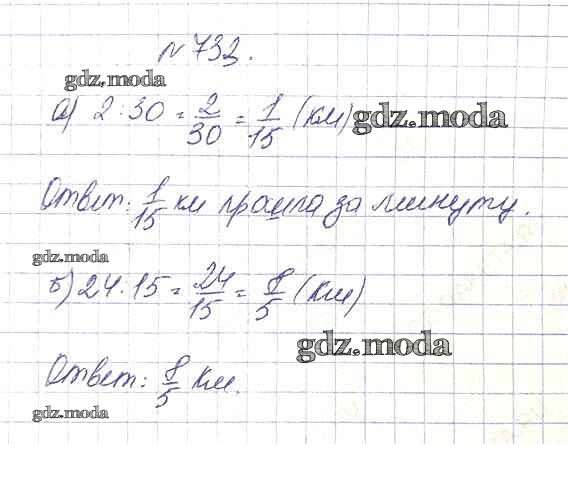 № 733.
gdz.moda
а) 2:30 = 2/30 = 1/15 (км) gdz.moda
Ответ: 1/15 км прошла за минуту.
gdz.moda
б) 24:15 = 24/15 = 8/5 (км)
gdz.moda
Ответ: 8/5 км.
gdz.moda